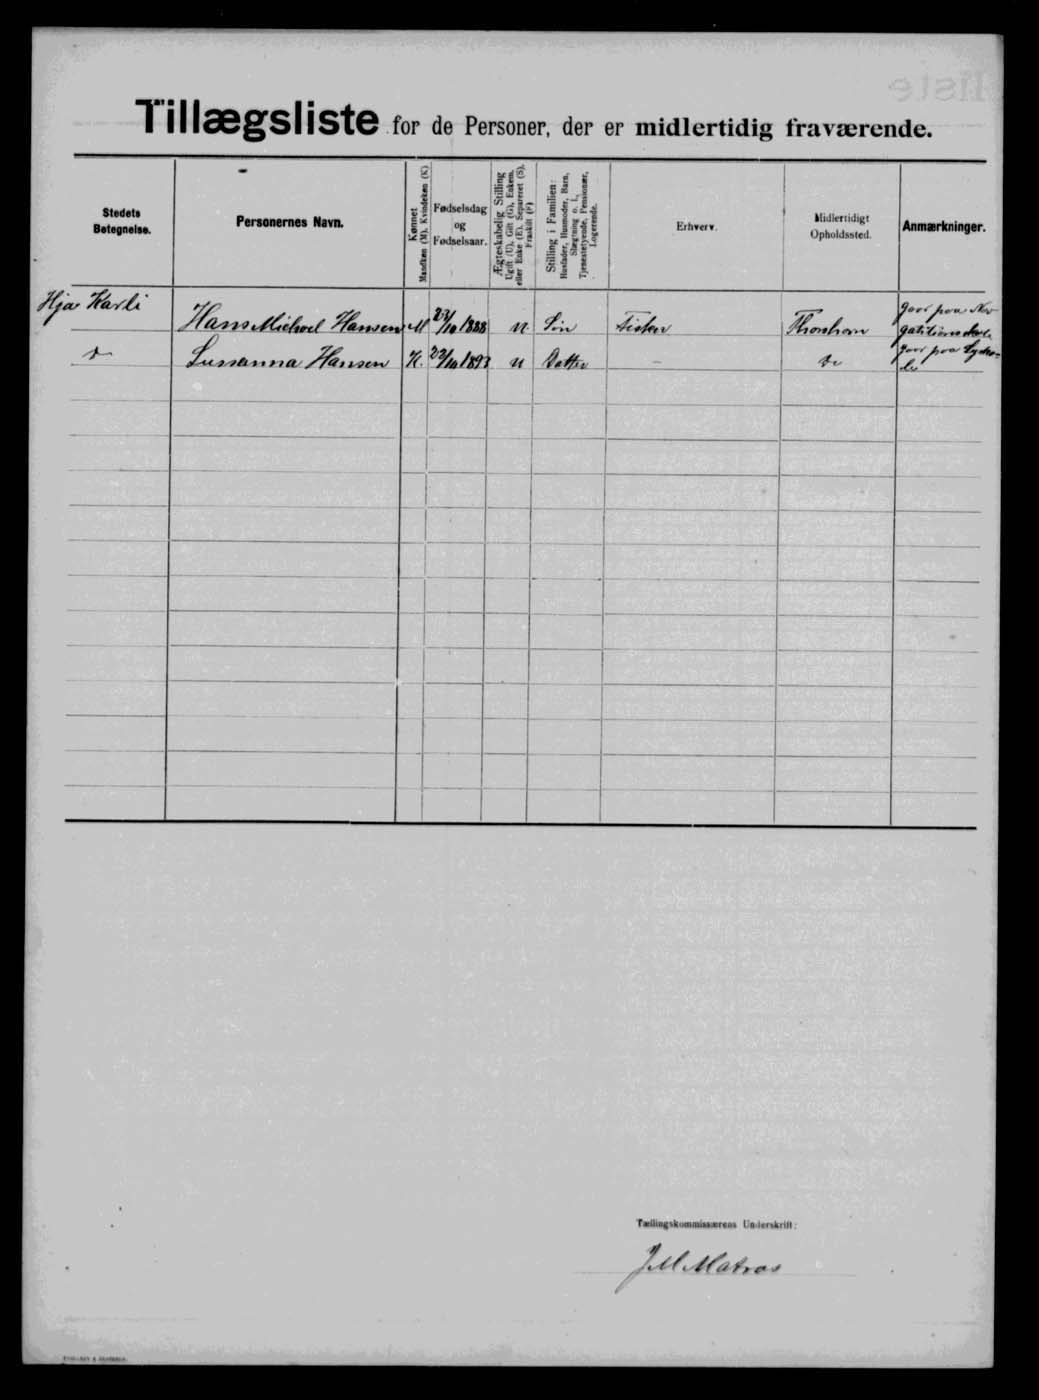 Tillægsliste for de Personer, der er midlertidig fraværende.
Stedets Betegnelse.
Personernes Navn.
Kønnet
Mandkøn (M). Kvindekøn (K)
Fødselsdag
og
Fødselsaar.
Ægteskabelig Stilling
Ugift (U), Gift (G), Enkem.
eller Enke (E), Separeret (S),
Fraskilt (F)
Stilling i Familien:
Husfader, Husmoder, Barn,
Slægtning o. l.,
Tjenestetyende, Pensionær,
Logerende.
Erhverv.
Midlertidigt
Opholdssted.
Anmærkninger.
Hja Karli Hans Michael Hansen M 23/10 1888 U Søn Fisker Thorshavn gaar paa Navigationsskole
do Sussanna Hansen K. 22/10 1893 U Datter – do gaar paa
Tællingskommissærens Underskrift:
J M Matras